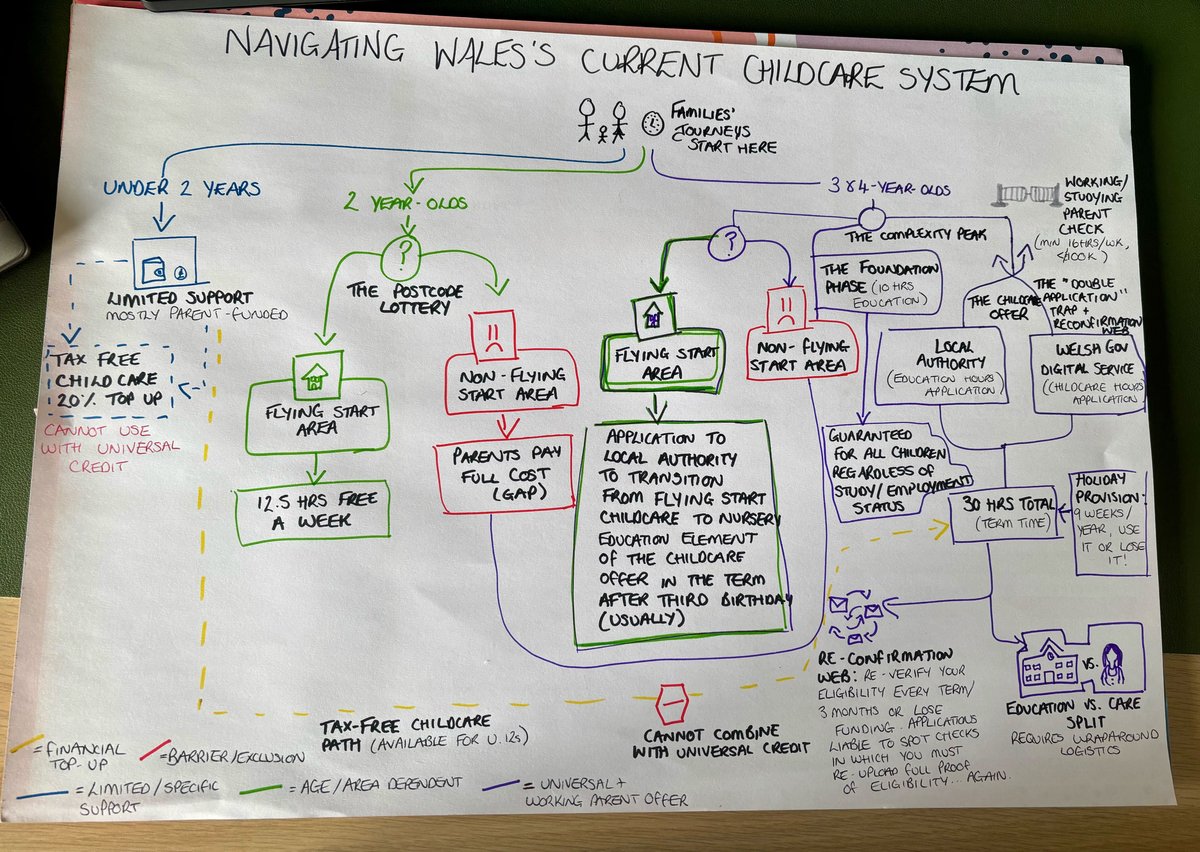 NAVIGATING WALES'S CURRENT CHILDCARE SYSTEM
FAMILIES'
JOURNEYS
START HERE
UNDER 2 YEARS
LIMITED SUPPORT
MOSTLY PARENT-FUNDED
TAX FREE
CHILDCARE
20% TOP UP
CANNOT USE
WITH UNIVERSAL
CREDIT
2 YEAR-OLDS
?
THE POSTCODE
LOTTERY
FLYING START
AREA
12.5 HRS FREE
A WEEK
NON-FLYING
START AREA
PARENTS PAY
FULL COST
(GAP)
3&4-YEAR-OLDS
?
FLYING START
AREA
APPLICATION TO
LOCAL AUTHORITY
TO TRANSITION
FROM FLYING START
CHILDCARE TO NURSERY
EDUCATION ELEMENT
OF THE CHILDCARE
OFFER IN THE TERM
AFTER THIRD BIRTHDAY
(USUALLY)
NON-FLYING
START AREA
THE COMPLEXITY PEAK
THE FOUNDATION
PHASE (10 HRS
EDUCATION)
GUARANTEED
FOR ALL CHILDREN
REGARDLESS OF
STUDY/EMPLOYMENT
STATUS
WORKING/
STUDYING
PARENT
CHECK
(MIN 16HRS/WK,
<£100K)
THE CHILDCARE
OFFER
THE "DOUBLE
APPLICATION"
TRAP +
RECONFIRMATION
WEB
LOCAL
AUTHORITY
(EDUCATION HOURS
APPLICATION)
WELSH GOV
DIGITAL SERVICE
(CHILDCARE HOURS
APPLICATION)
30 HRS TOTAL
(TERM TIME)
HOLIDAY
PROVISION:
9 WEEKS/
YEAR, USE
IT OR LOSE
IT!
RE-CONFIRMATION
WEB: RE-VERIFY YOUR
ELIGIBILITY EVERY TERM/
3 MONTHS OR LOSE
FUNDING. APPLICATIONS
LIABLE TO SPOT CHECKS
IN WHICH YOU MUST
RE-UPLOAD FULL PROOF
OF ELIGIBILITY... AGAIN.
VS.
EDUCATION VS. CARE
SPLIT
REQUIRES WRAPAROUND
LOGISTICS
TAX-FREE CHILDCARE
PATH (AVAILABLE FOR U.12s)
CANNOT COMBINE
WITH UNIVERSAL CREDIT
= FINANCIAL
TOP-UP
= BARRIER/EXCLUSION
= LIMITED/SPECIFIC
SUPPORT
= AGE/AREA DEPENDENT
= UNIVERSAL +
WORKING PARENT OFFER